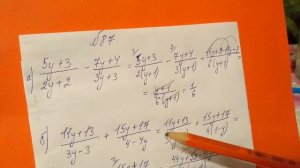 №87
а) (5y+3)/(2y+2) - (7y+4)/(3y+3) = (5y+3)/(2(y+1)) - (7y+4)/(3(y+1)) = (15y+9-14y-8)/(6(y+1)) =
= (y+1)/(6(y+1)) = 1/6
б) (11y+13)/(3y-3) + (15y+17)/(4-4y) = (11y+13)/ + (15y+17)/(4(1-y)) =